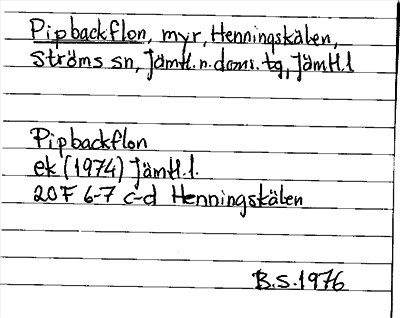 Pipbackflon, myr, Henningskälen,
Ströms sn, Jämtl.n.doms.tg, Jämtl.l
Pipbackflon
ek (1974) Jämtl.l.
20F 6-7 c-d Henningskälen
B.S.1976